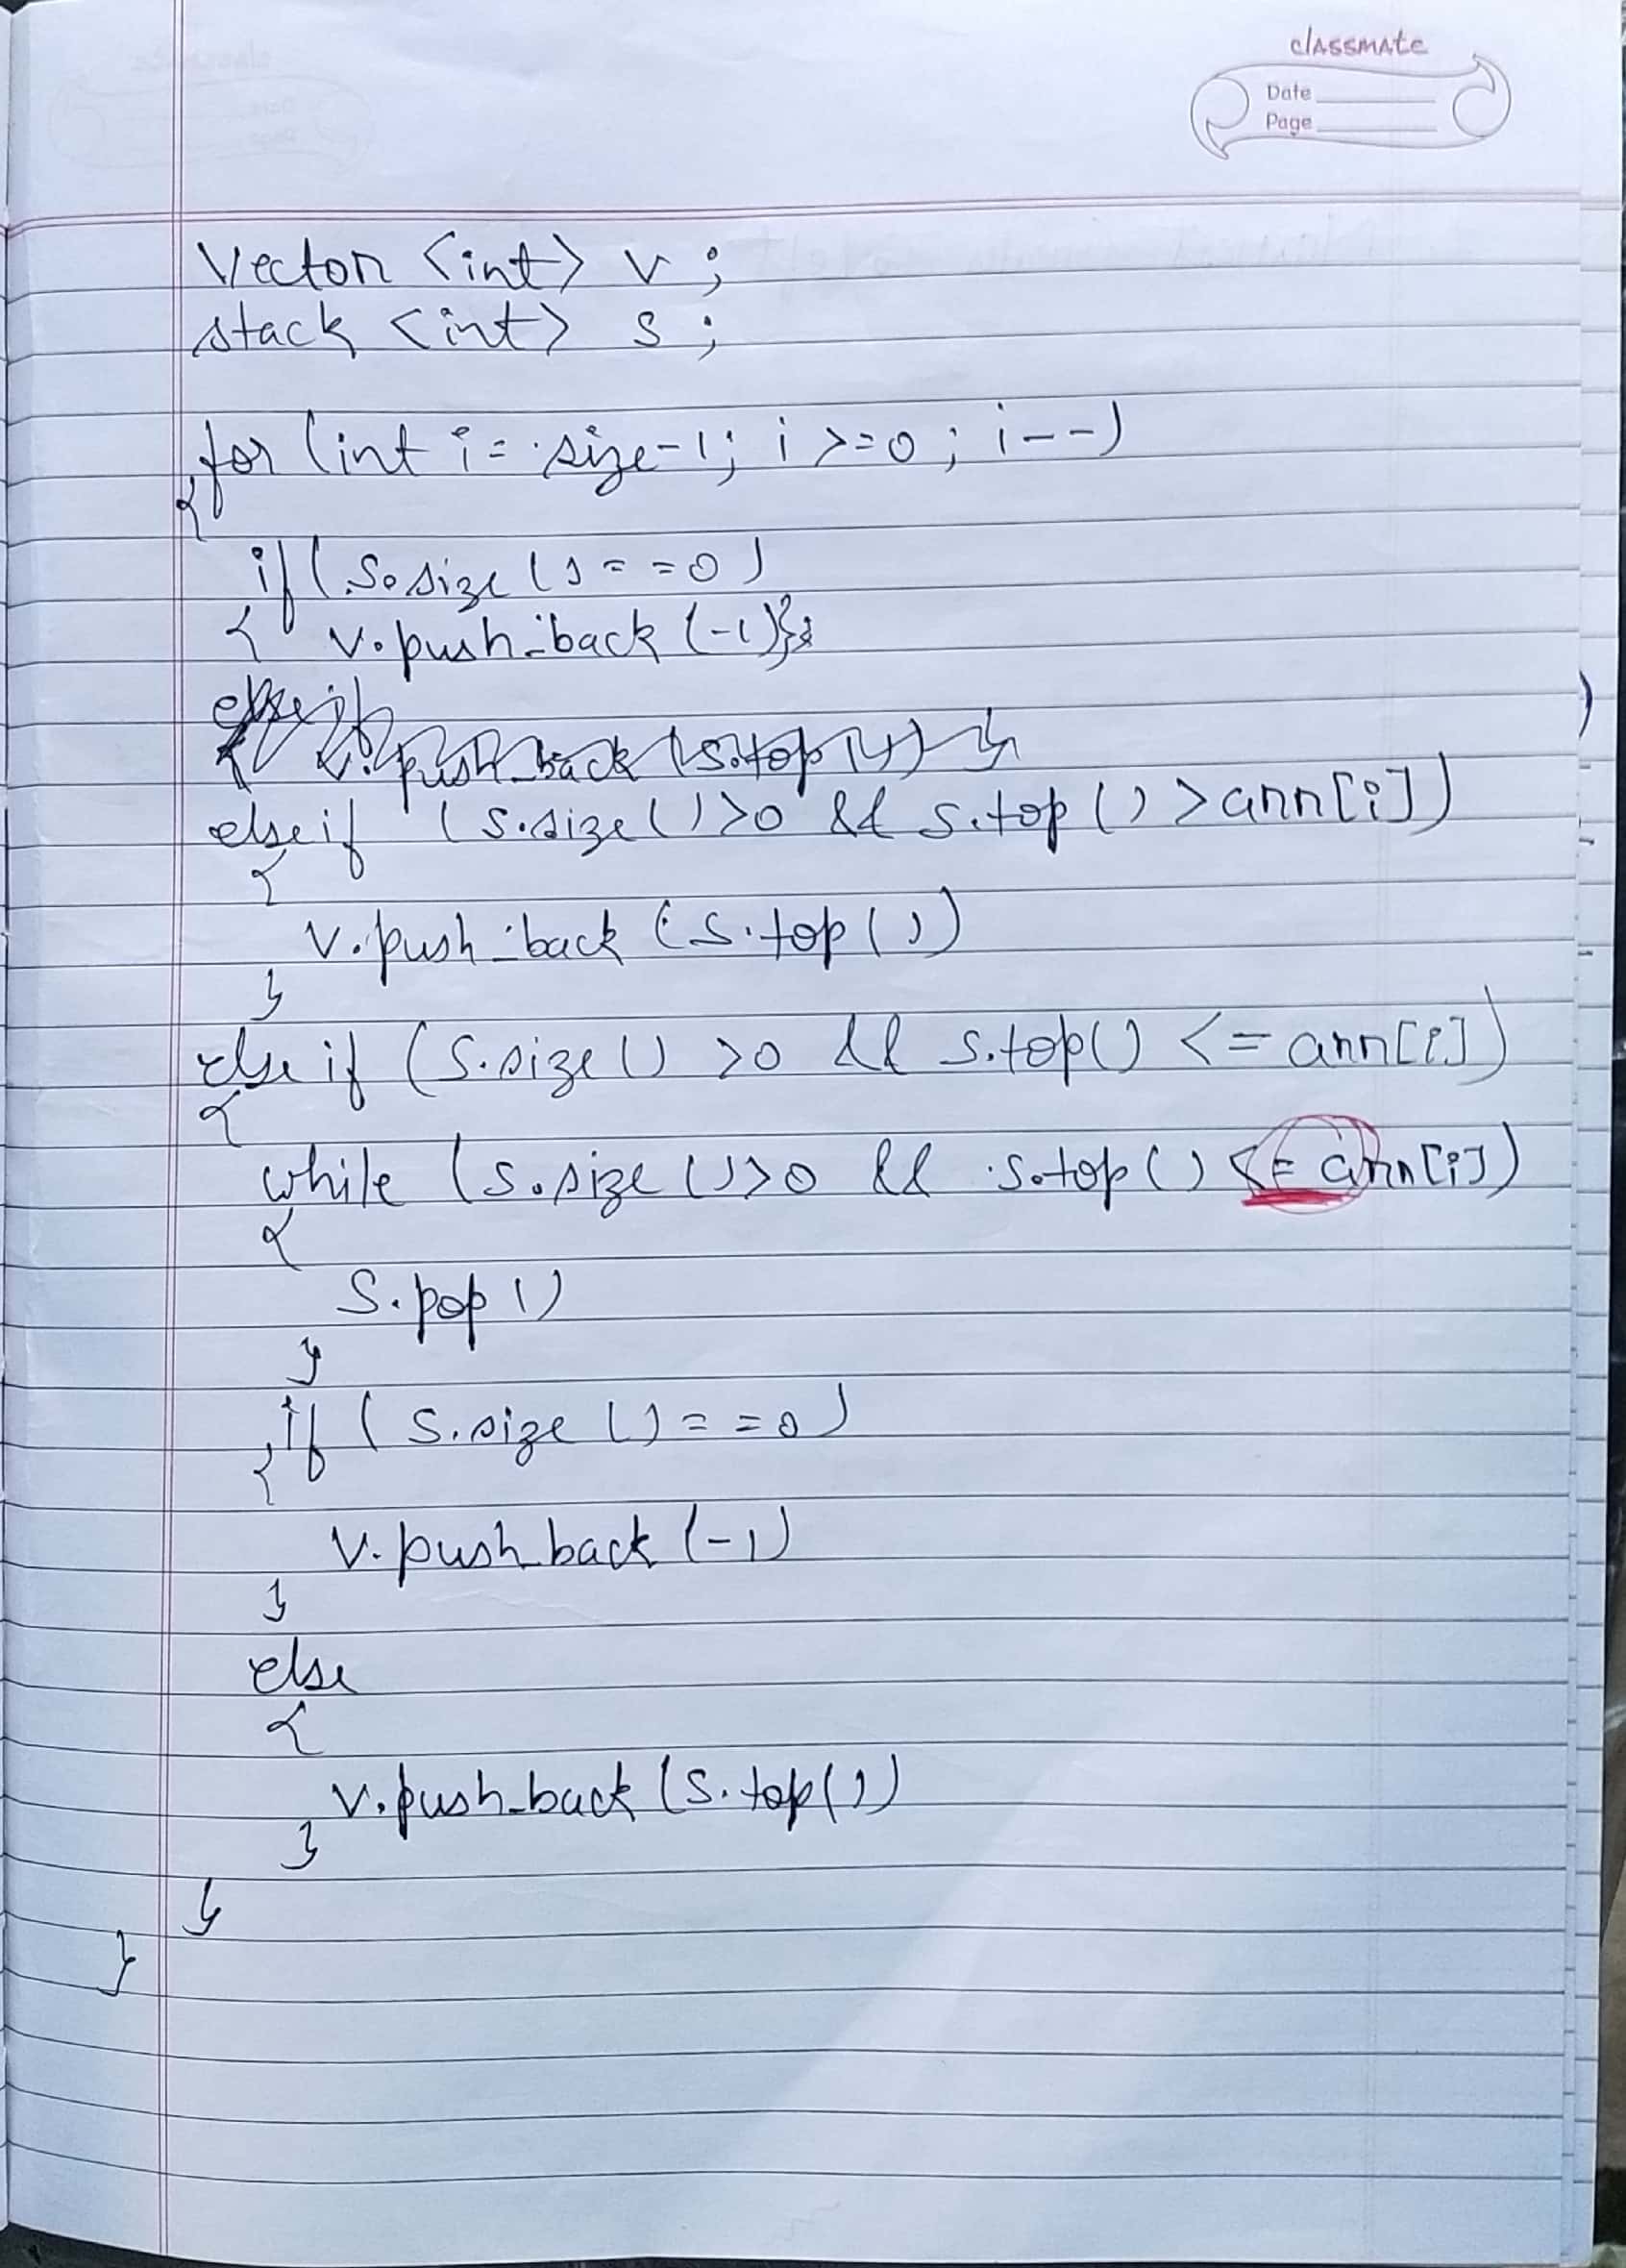 classmate
Date
Page
Vector <int> v ;
stack <int> s ;
for (int i = size-1; i >=0 ; i--)
{
if ( s.size () == 0 )
{ v.push_back (-1)};
else if
{ v.push_back (s.top ()) }
else if ( s.size () >0 && s.top () > arr[i])
{
v.push_back (s.top ())
}
else if (s.size () >0 && s.top() <= arr[i])
{
while (s.size () >0 && s.top () <= arr[i])
{
s.pop ()
}
if ( s.size () == 0 )
{
v.push_back (-1)
}
else
{
v.push_back (s.top())
}
}
}